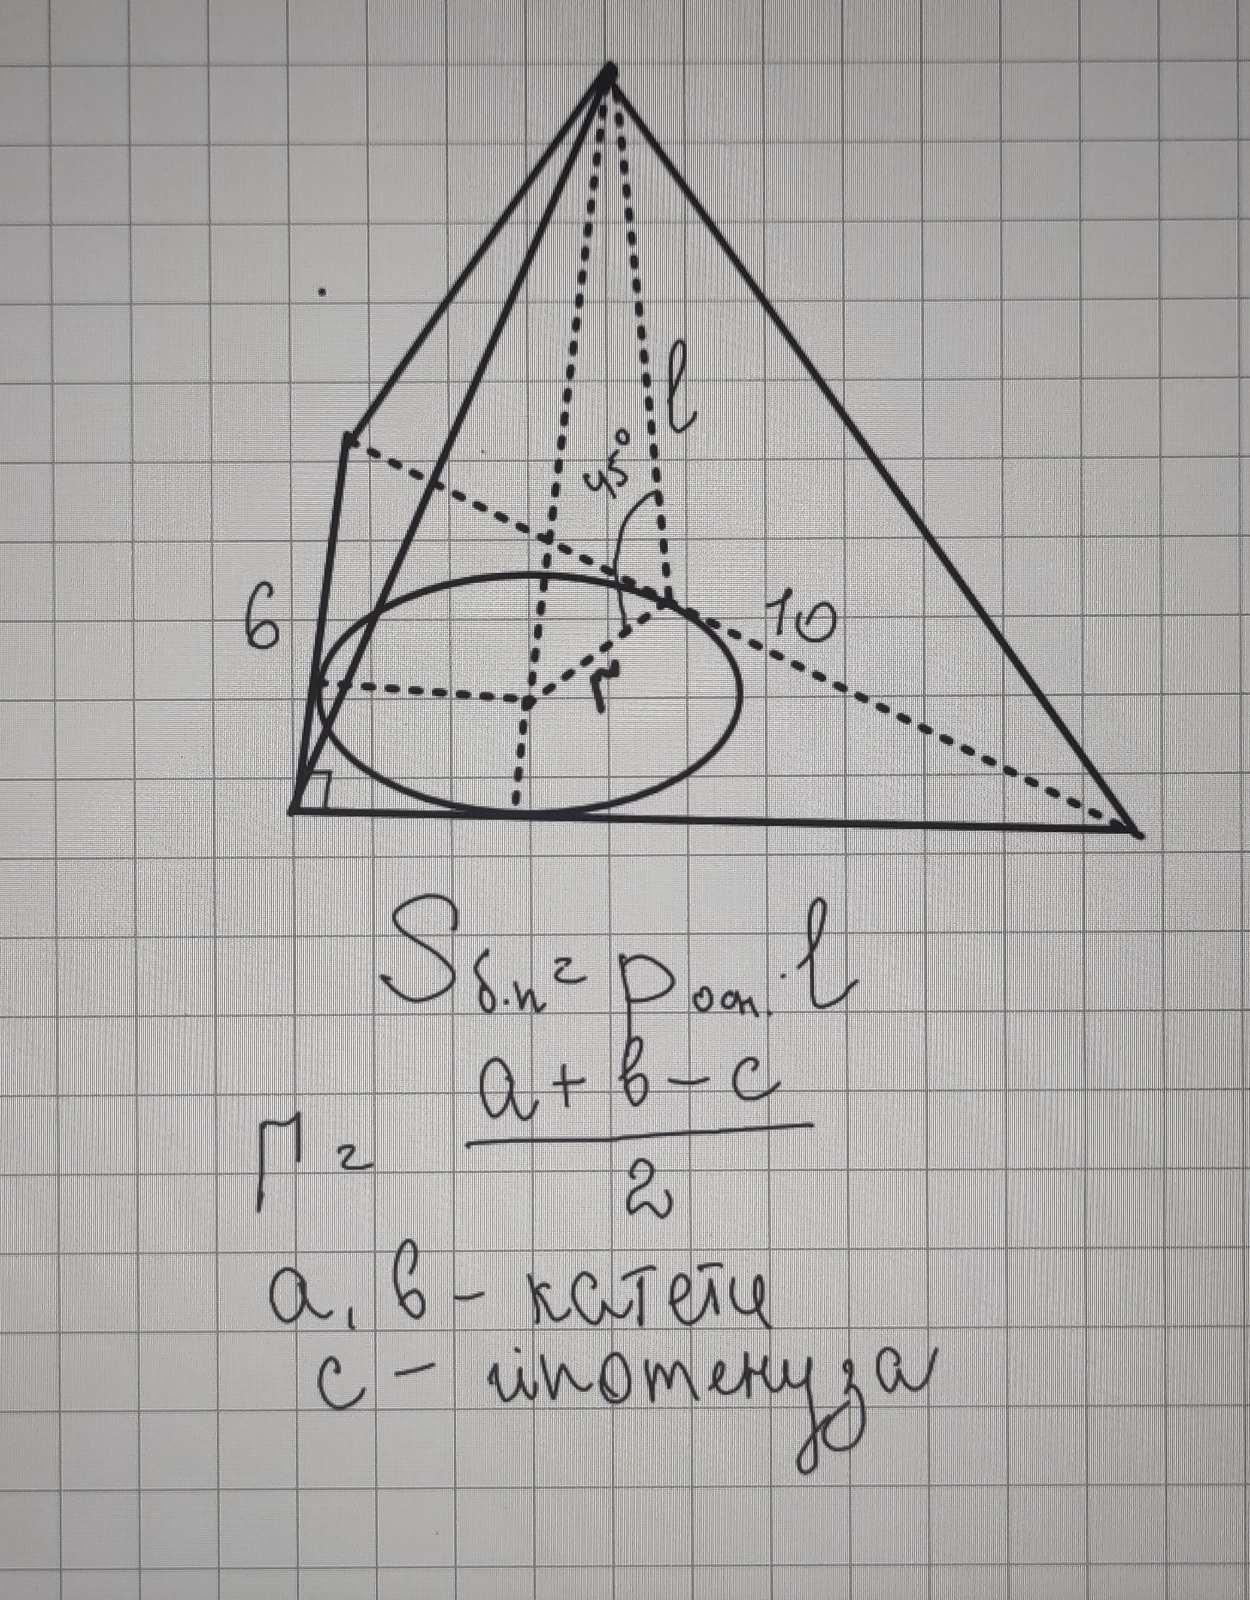 l
45°
6
10
r
Sб.п = Pосн. · l
r = a + b - c
2
a, b - катети
c - гіпотенуза